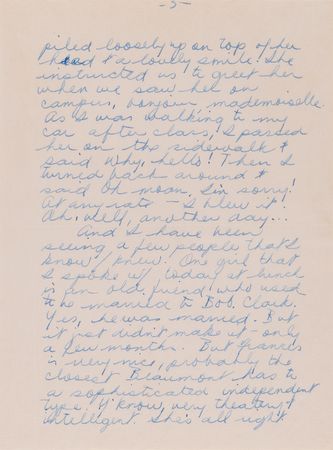 - 5 -
piled loosely up on top of her
head & a lovely smile. She
instructed us to greet her
when we saw her on
campus, bonjour, mademoiselle.
As I was walking to my
car after class, I passed
her on the sidewalk &
said Why, hello! Then I
turned back around &
said Oh moan, I'm sorry!
At any rate - I blew it!
Oh, well, another day...
And I have been
seeing a few people that I
know/knew. One girl that
I spoke w/ today at lunch
is an old friend who used
to be married to Bob Clark.
Yes, he was married. But
it just didn't make it - only
a few months. But Frances
is very nice, probably the
closest Beaumont has to
a sophisticated independent
type. Y'know, very theatery &
intelligent. She's all right